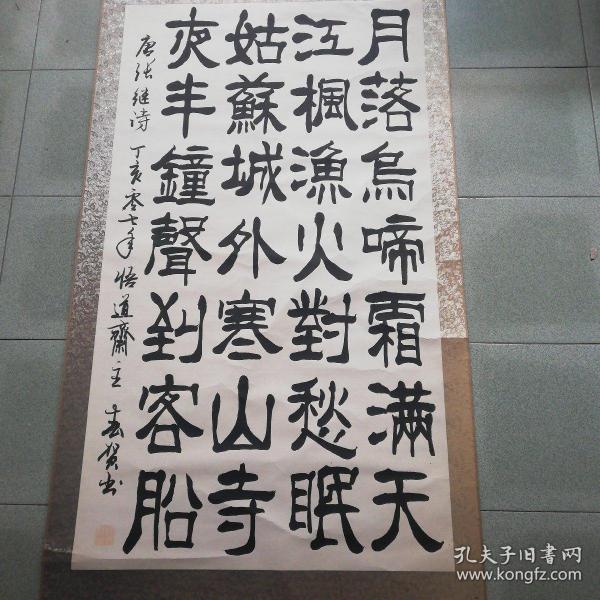 月落烏啼霜滿天
江楓漁火對愁眠
姑蘇城外寒山寺
夜半鐘聲到客船
唐张继诗 丁亥零七年 悟道齋主 春贺书
孔夫子旧书网
www.kongfz.com